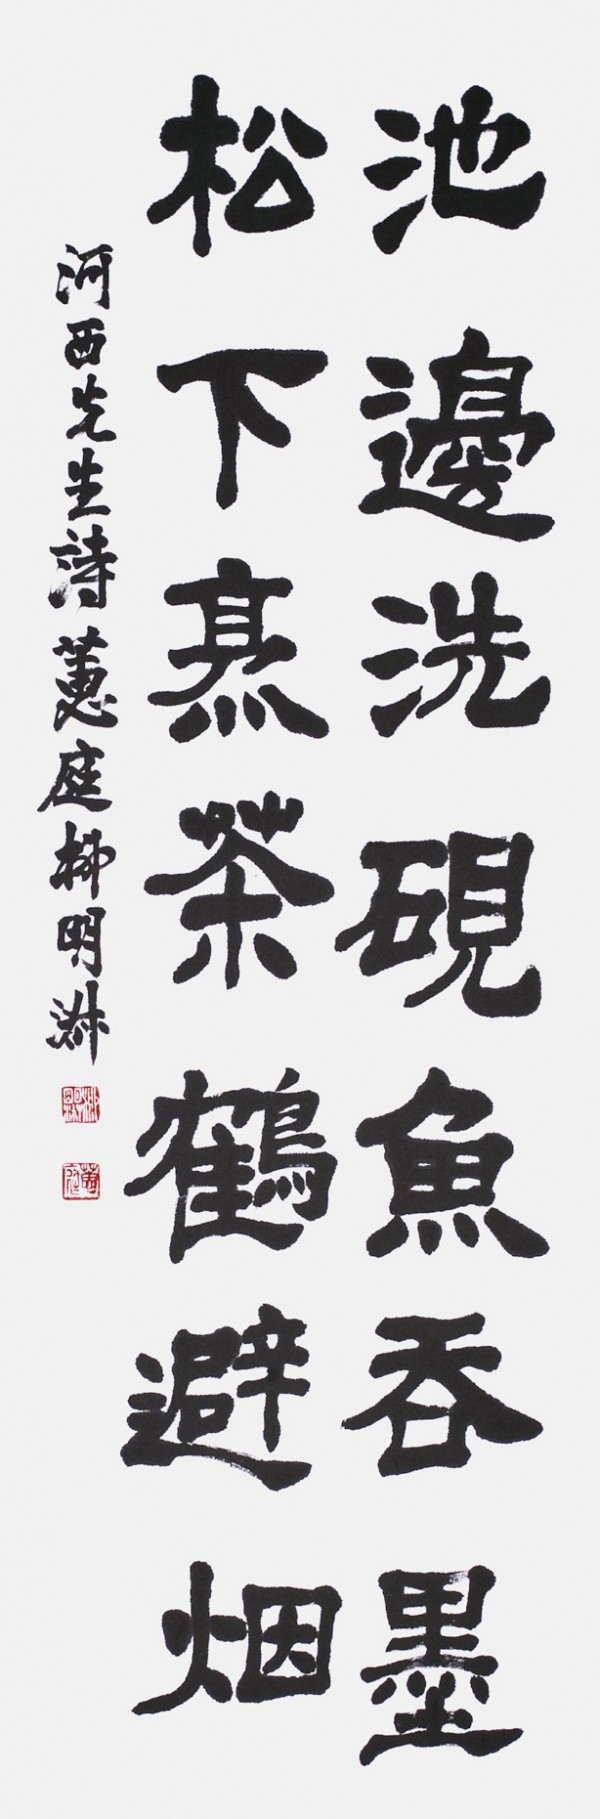 池邊洗硯魚吞墨
松下烹茶鶴避烟
河西先生詩蕙庭柳明淑
蕙庭